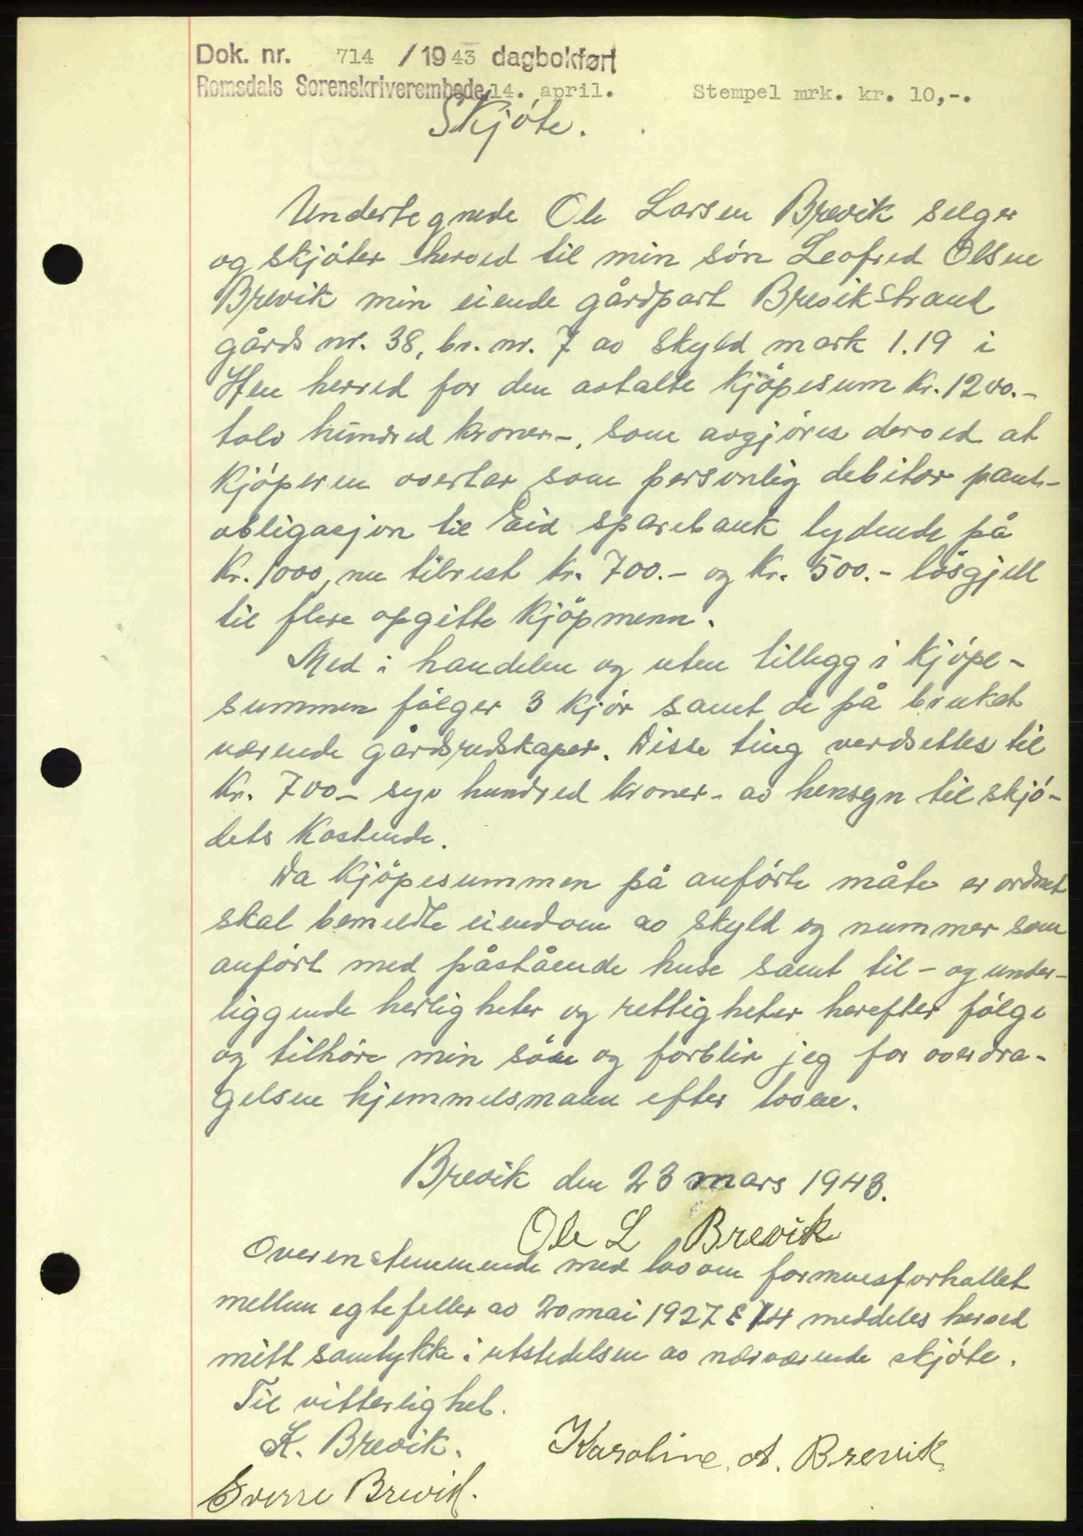 Dok. nr. 714 /19 43 dagbokført
Romsdals Sorenskriverembede 14. april. Stempel mrk. kr. 10,-.
Skjöte.
Undertegnede Ole Larsen Brevik selger
og skjöter herved til min sön Leofred Olsen
Brevik min eiende gårdpart Brevikstrand
gårds nr. 38, br. nr. 7 av skyld mark 1.19 i
Hen herred for den avtalte kjöpesum kr. 1200.-
tolv hundred kroner-, som avgjöres derved at
kjöperen overtar som personlig debitor pant-
obligasjon til Eid sparebank lydende på
kr. 1000, nu tilrest kr. 700.- og kr. 500.- lösgjell
til flere opgitte kjöpmenn.
Med i handelen og uten tillegg i kjöpe-
summen fölger 3 kjör samt de på bruket
værende gårdsredskaper. Disse ting verdsettes til
kr. 700- syv hundred kroner- av hensyn til skjö-
dets kostende.
Da kjöpesummen på anförte måte er ordnet
skal bemeldte eiendom av skyld og nummer som
anfört med påstående huse samt til- og under-
liggende herligheter og rettigheter herefter fölge
og tilhöre min sön og forblir jeg for overdra-
gelsen hjemmelsmann efter loven.
Brevik den 23 mars 1943.
Ole L Brevik
Overenstemmende med lov om formuesforhallet
mellem egtefeller av 20 mai 1927 § 14 meddeles herved
mitt samtykke i utstedelsen av nærværende skjöte.
Til vitterlighet.
K. Brevik. Karoline A. Brevik
Sverre Brevik.